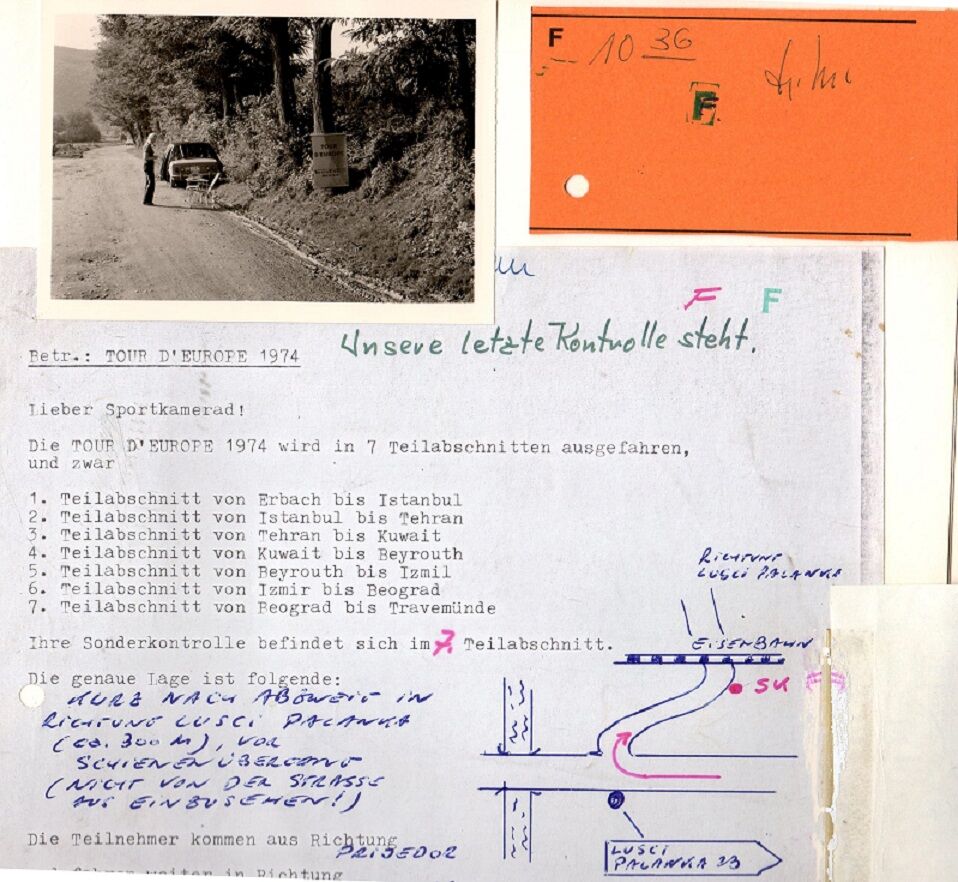 F
10 36
F
TOUR
D'EUROPE
F F
Unsere letzte Kontrolle steht.
Betr.: TOUR D'EUROPE 1974
Lieber Sportkamerad!
Die TOUR D'EUROPE 1974 wird in 7 Teilabschnitten ausgefahren,
und zwar
1. Teilabschnitt von Erbach bis Istanbul
2. Teilabschnitt von Istanbul bis Tehran
3. Teilabschnitt von Tehran bis Kuwait
4. Teilabschnitt von Kuwait bis Beyrouth
5. Teilabschnitt von Beyrouth bis Izmil
6. Teilabschnitt von Izmir bis Beograd
7. Teilabschnitt von Beograd bis Travemünde
Ihre Sonderkontrolle befindet sich im 7. Teilabschnitt.
Die genaue Lage ist folgende:
KURZ NACH ABZWEIG IN
RICHTUNG LUSCI PALANKA
(ca. 300 M), VOR
SCHIENENÜBERGANG
(NICHT VON DER STRASSE
AUS EINZUSEHEN!)
RICHTUNG
LUSCI PALANKA
EISENBAHN
SK
LUSCI
PALANKA 23
Die Teilnehmer kommen aus Richtung
PRIJEDOR
fahren weiter in Richtung